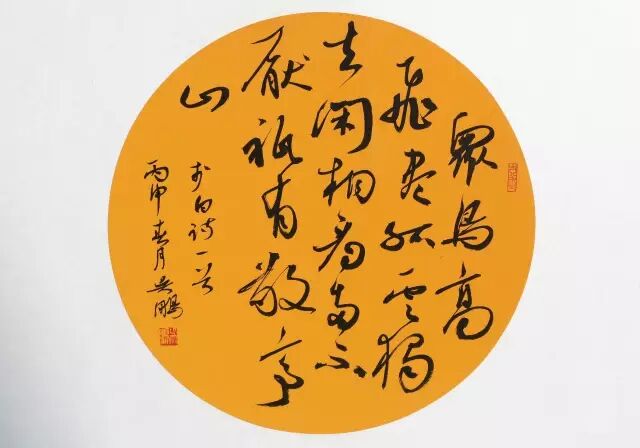 眾鳥高
飛盡孤雲獨
去閑相看兩不
厭祇有敬亭
山
李白詩一首
丙申春月吴鵬